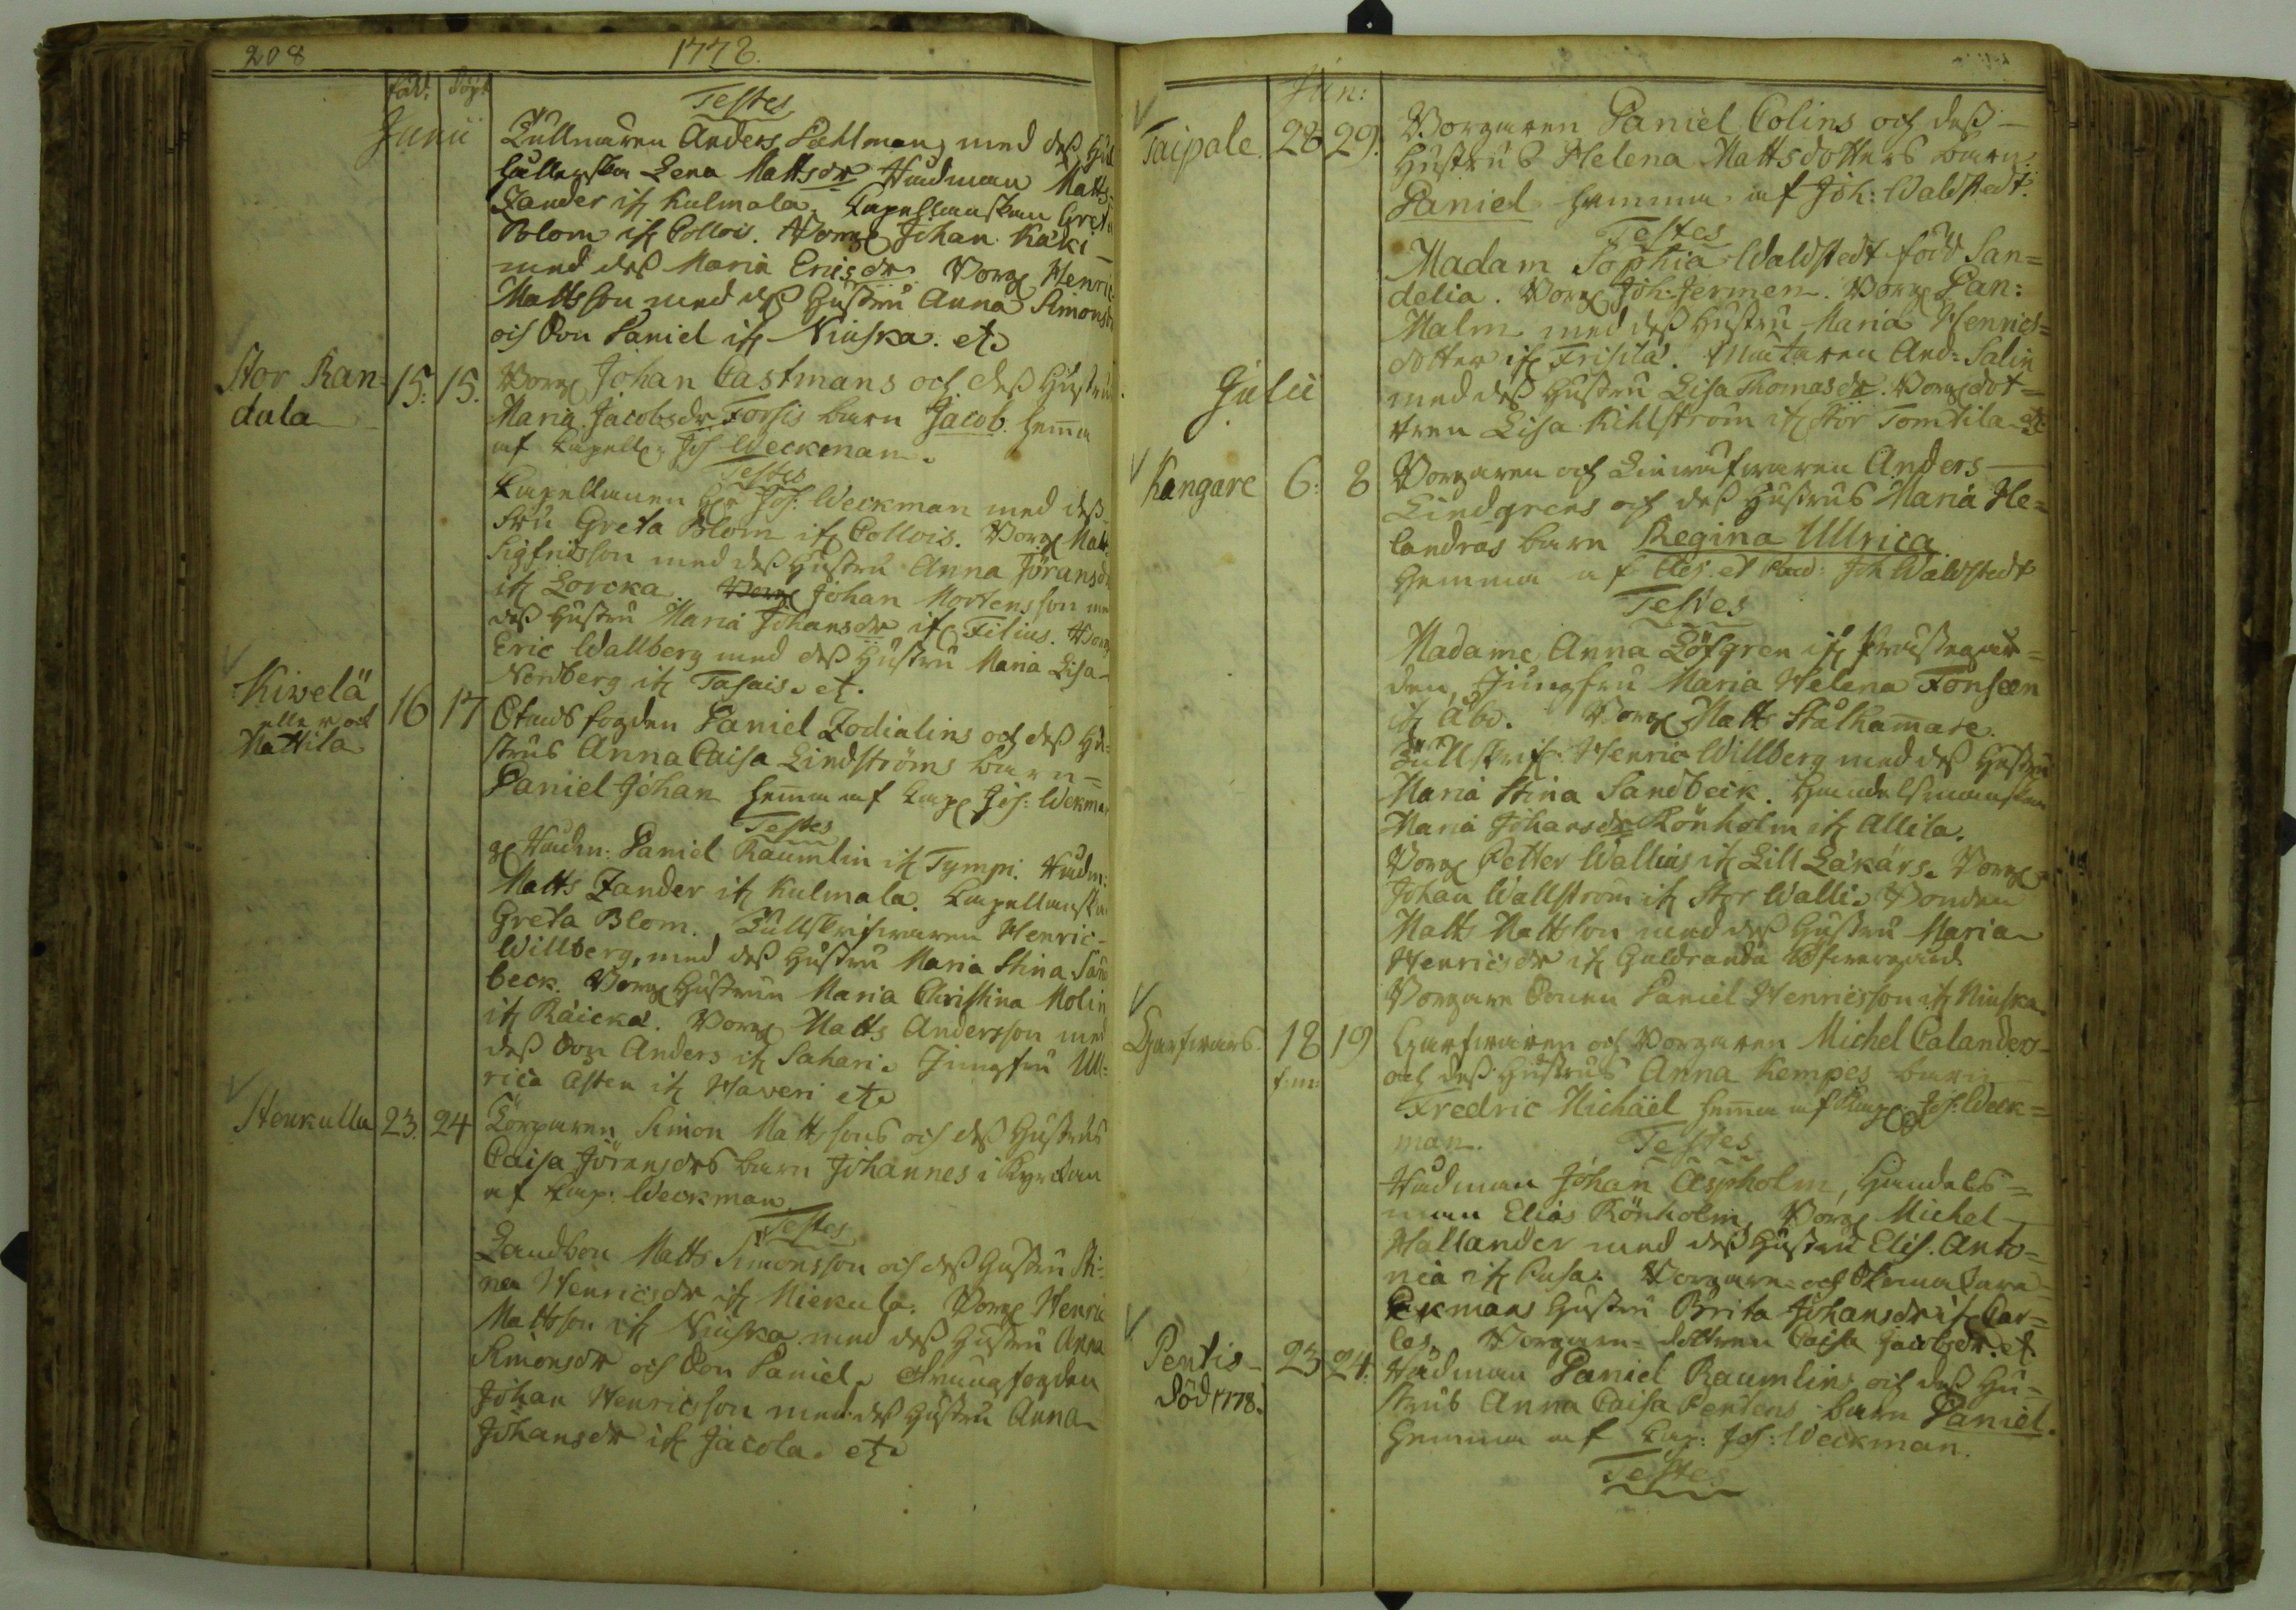 208
1778.
född. Döpt
Junii
Testes
Tullnären Anders Dahlman, med dess Hus
hållerska Lena Mattsdr Rådman Matts
Zander ifr Kulmala. Capellanskan Greta
Blom ifr Collois. Borg. Johan Käki
med dess Maria Ericsdr. Borg. Henric
Mattsson med dess Hustru Anna Simonsdr
och Son Daniel ifr Niuska. etc
Stor Ran=
dala
15. 15.
Borg. Johan Castmans och dess Hustru
Maria Jacobsdr Forsis barn Jacob. hema
af Capell. Jos. Weckman.
Testes
Capellanen Hr Jos: Weckman med dess
Fru Greta Blom ifr Collois. Borg. Matts
Sigfridsson med dess Hustru Anna Jöransdr
ifr Lorcka. Borg. Johan Mortensson med
dess Hustru Maria Johansdr ifr Filius. Borg.
Eric Wallberg med dess Hustru Maria Lisa
Nordberg ifr Tasais. etc.
Kiwelä
eller och
Mattila
16 17
Stads fogden Daniel Zodialins och dess Hu=
strus Anna Caisa Lindströms barn =
Daniel Johan hema af Cap. Jos: Wekman
Testes
Rådm: Daniel Raumlin ifr Tympi. Rådm:
Matts Zander ifr Kulmala. Capellanskan
Greta Blom. Tullskrifvaren Henric
Willberg, med dess Hustru Maria Stina Sand
beck. Borg. Hustrun Maria Christina Molin
ifr Räickä. Borg. Matts Andersson med
dess Son Anders ifr Sahari. Jungfru Ul=
rica Asten ifr Haveri etc
Stenkulla 23. 24
Torparen Simon Mattssons och dess Hustrus
Caisa Jöransdrs barn Johannes i Kyrckan
af Cap: Weckman.
Testes
Landbon Matts Simonsson och dess Hustru Sti=
na Henricsdr ifr Miekala. Borg. Henric
Mattsson ifr Niuska med dess Hustru Anna
Simonsdr och Son Daniel. fogden
Johan Henricsson med dess Hustru Anna
Johansdr ifr Jacola. etc
Jun:
Taipale. 28 29.
Borgaren Daniel Colins och dess
Hustrus Helena Mattsdotters barn.
Daniel hemma af Joh: Waldstedt.
Testes
Madam Sophia Waldstedt född San=
delia. Borg. Joh: Jermen. Borg. Dan:
Malm med dess Hustru Maria Henrics=
dotter ifr Frisilä. And: Salin
med dess Hustru Lisa Thomasdr. Borg. dot=
tren Lisa Kihlström ifr Stor Tomtila etc
Julii
Kangare 6. 8
Borgaren och Linwäfvaren Anders
Lindgrens och dess Hustrus Maria He=
landras barn Regina Ullrica
Hemma af Joh Waldstedt
Testes
Madame Anna Löfgren ifr Prästegår=
den, Jungfru Maria Helena Fonseen
ifr Åbo. Borg. Matts Stålhamare.
Tullskrif. Henric Willberg med dess Hustru
Maria Stina Sandbeck. Handelsmanskan
Maria Johansdr Rönholm ifr Allila.
Borg. Petter Wallius ifr Lill Läkärs. Borg.
Johan Wallstrom ifr Stor Walli. Bonden
Matts Mattsson med dess Hustru Maria
Henricsdr ifr Guldranda Öfwergård
Borgare Sonen Daniel Henricsson ifr Niuska.
Garfwars. 18 19
f:m:
Garfvaren och Borgaren Michel Calanders
och dess Hustrus Anna Kempes barn
Fredric Michäel hema af Cap. Jos: Weck=
man.
Testes
Rådman Johan Aspholm, Handels=
man Elias Rönholm, Borg. Michel
Hallander med dess Hustru Elis. Anto=
nia ifr Pusa. Borgare och
Ekmans Hustru Brita Johansdr ifr Car=
las. Borgare dottren Caisa Jacobsdr. etc.
Pentis 23 24.
död 1778.
Rådman Daniel Raumlins och dess Hu=
strus Anna Caisa Pentens barn Daniel.
Hemma af Cap: Jos: Weckman.
Testes